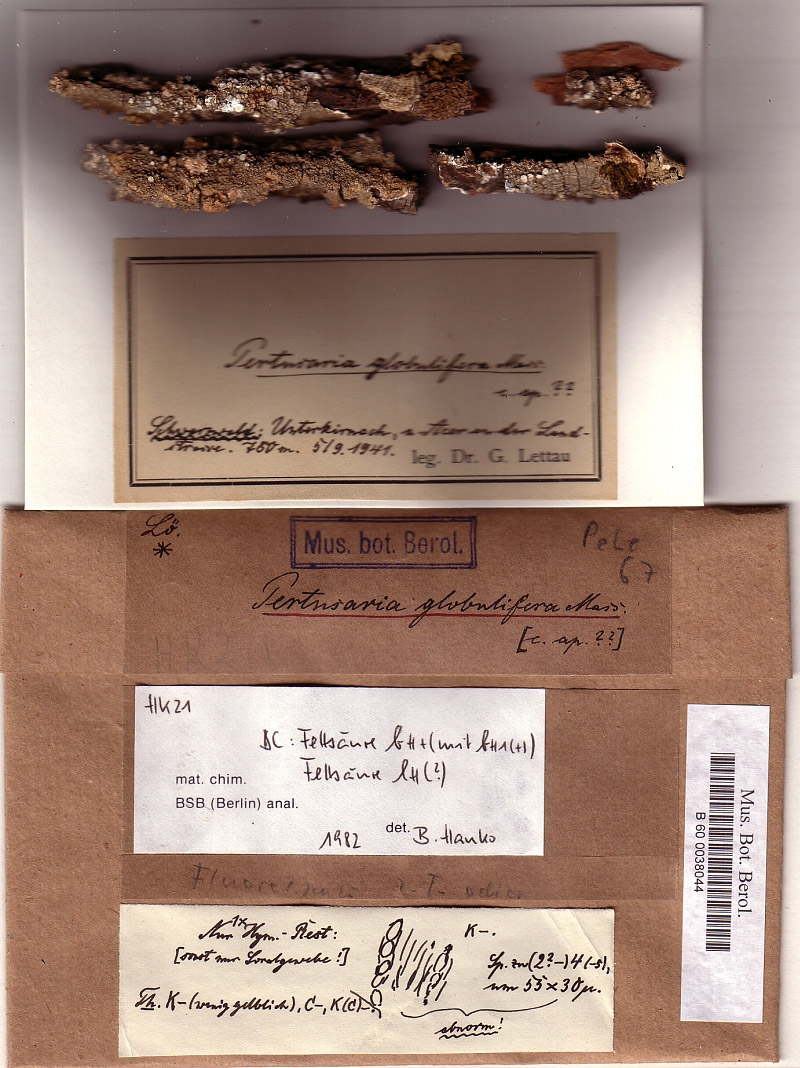 Pertusaria globulifera Mass.
c. ap. ??
Schwarzwald: Unterkirnach, a. Acer an der Land-
strasse. 780 m. 5/9. 1941.
leg. Dr. G. Lettau
Lö.
*
Mus. bot. Berol.
67
Pertusaria globulifera Mass.
[c. ap. ??]
HK21
DC: Fettsäure bH+ (mit bH1(+)
Fettsäure lH(?)
mat. chim.
BSB (Berlin) anal.
1982 det. B. Hanko
Mus. Bot. Berol.
B 60 0038044
Nur 1x Hym.-Rest:
[sonst nur Soralgewebe!]
K-.
Sp. zu (2?-) 4 (-5),
um 55 x 30 µ.
Th. K- (wenig gelblich), C-, K(C)-.
abnorm!